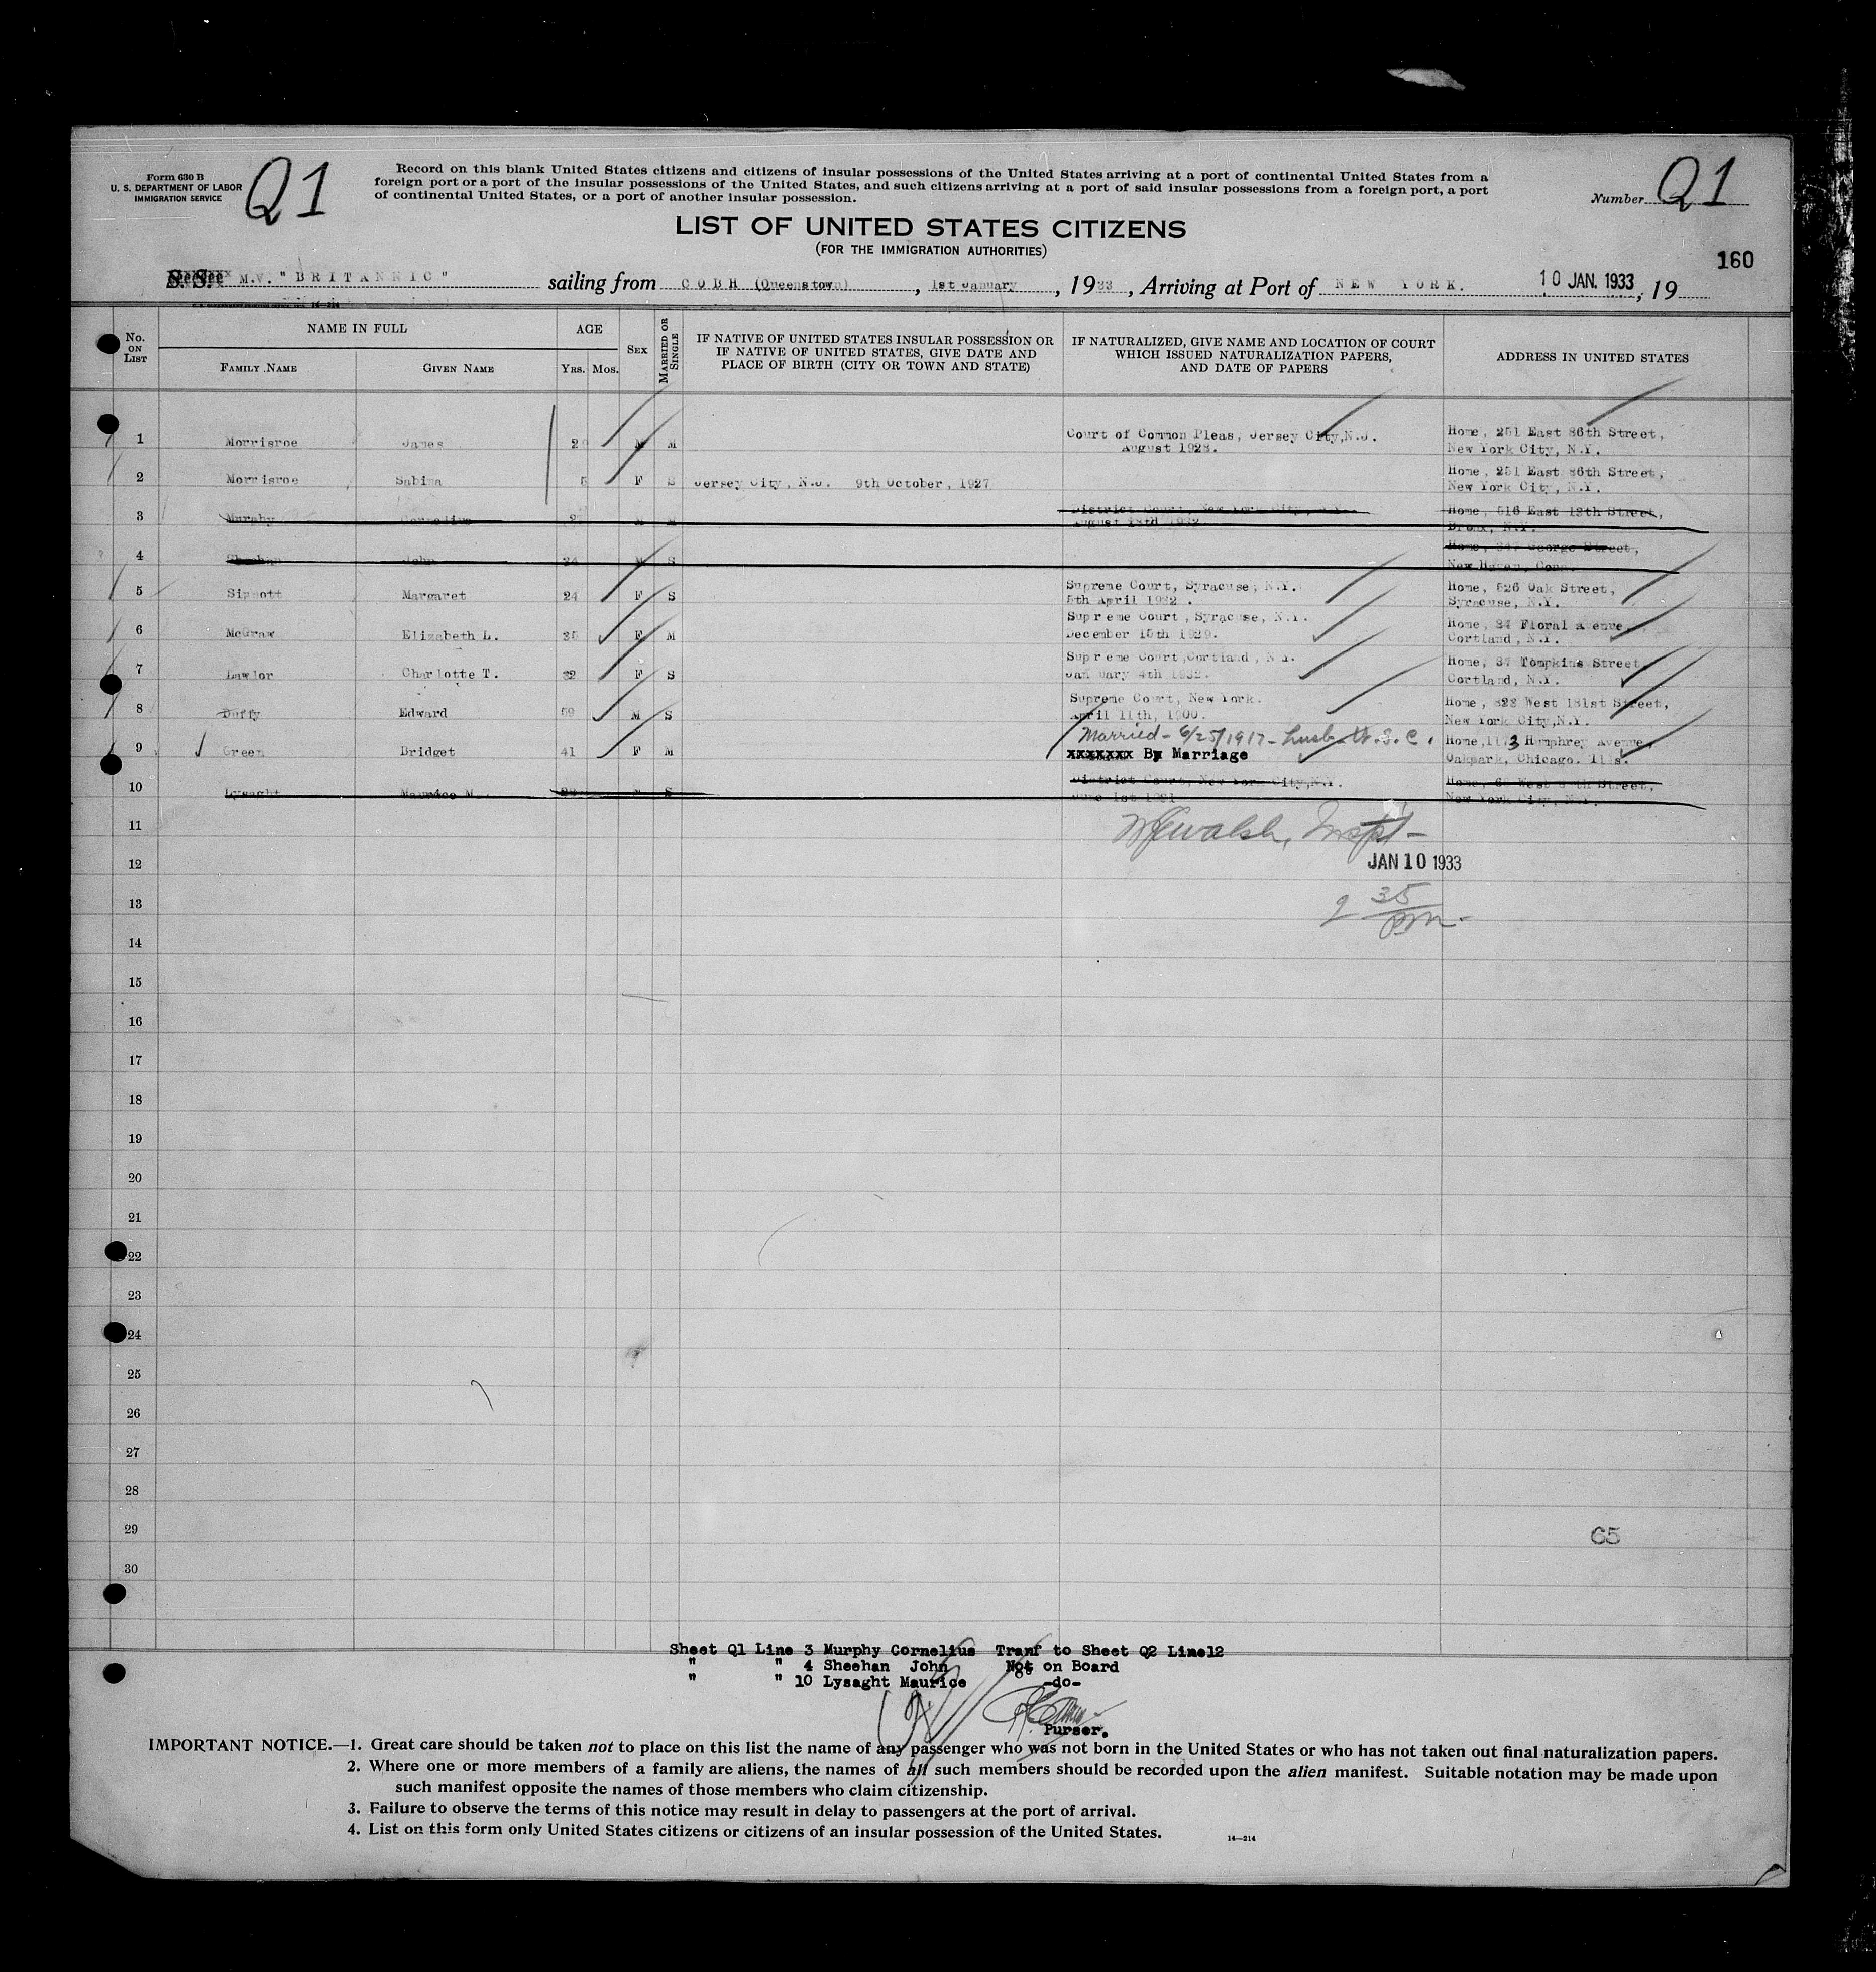 Form 630 B
U. S. DEPARTMENT OF LABOR
IMMIGRATION SERVICE
Q1
Record on this blank United States citizens and citizens of insular possessions of the United States arriving at a port of continental United States from a
foreign port or a port of the insular possessions of the United States, and such citizens arriving at a port of said insular possessions from a foreign port, a port
of continental United States, or a port of another insular possession.
Number Q1
LIST OF UNITED STATES CITIZENS
(FOR THE IMMIGRATION AUTHORITIES)
160
S. S. M.V. "BRITANNIC" sailing from COBH (Queenstown), 1st January, 1933, Arriving at Port of NEW YORK. 10 JAN. 1933, 19
No. ON LIST
NAME IN FULL
FAMILY NAME GIVEN NAME
AGE
YRS. MOS.
SEX
MARRIED OR SINGLE
IF NATIVE OF UNITED STATES INSULAR POSSESSION OR
IF NATIVE OF UNITED STATES, GIVE DATE AND
PLACE OF BIRTH (CITY OR TOWN AND STATE)
IF NATURALIZED, GIVE NAME AND LOCATION OF COURT
WHICH ISSUED NATURALIZATION PAPERS,
AND DATE OF PAPERS
ADDRESS IN UNITED STATES
1 Morrisroe James M M Court of Common Pleas, Jersey City, N.J. Home, 251 East 86th Street,
August 1928. New York City, N.Y.
2 Morrisroe Sabina 5 F S Jersey City, N.J. 9th October, 1927 Home, 251 East 86th Street,
New York City, N.Y.
3 Murphy Cornelius M M District Court, New York City, N.Y. Home, 516 East 13th Street,
Bronx, N.Y.
4 Sheehan John 24 M S Home, George Street,
New Haven, Conn.
5 Sinnott Margaret 24 F S Supreme Court, Syracuse, N.Y. Home, 526 Oak Street,
5th April 1932. Syracuse, N.Y.
6 McGraw Elizabeth L. 35 F M Supreme Court, Syracuse, N.Y. Home, 34 Floral Avenue,
December 15th 1929. Cortland, N.Y.
7 Lawlor Charlotte T. 32 F S Supreme Court, Cortland, N.Y. Home, 37 Tompkins Street,
January 4th 1932. Cortland, N.Y.
8 Duffy Edward 59 M S Supreme Court, New York. Home, 828 West 181st Street,
April 11th, 1900. New York City, N.Y.
9 Green Bridget 41 F M Married - 6/25/1917 - husb. U.S.C. Home, 1173 Humphrey Avenue,
xxxxxxx By Marriage Oakpark, Chicago. Ills.
10 Lysaght Maurice M. S District Court, New York City, N.Y. Home, West Street,
June 1st 1931 New York City, N.Y.
11
Walsh, Inspt-
12
JAN 10 1933
13
2 35 pm.
14
15
16
17
18
19
20
21
22
23
24
25
26
27
28
29
65
30
Sheet Q1 Line 3 Murphy Cornelius Tranf to Sheet Q2 Line12
" " 4 Sheehan John Not on Board
" " 10 Lysaght Maurice -do-
Purser.
IMPORTANT NOTICE.—1. Great care should be taken not to place on this list the name of any passenger who was not born in the United States or who has not taken out final naturalization papers.
2. Where one or more members of a family are aliens, the names of all such members should be recorded upon the alien manifest. Suitable notation may be made upon
such manifest opposite the names of those members who claim citizenship.
3. Failure to observe the terms of this notice may result in delay to passengers at the port of arrival.
4. List on this form only United States citizens or citizens of an insular possession of the United States.
14—214